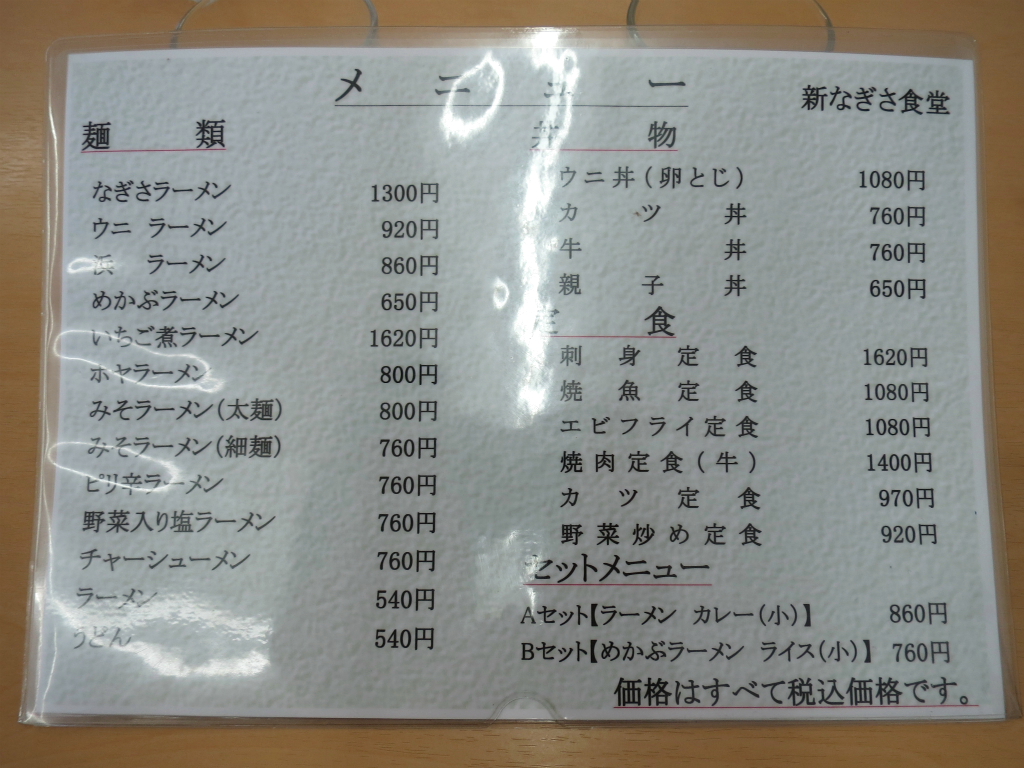 メニュー
新なぎさ食堂
麺類
なぎさラーメン 1300円
ウニ ラーメン 920円
浜 ラーメン 860円
めかぶラーメン 650円
いちご煮ラーメン 1620円
ホヤラーメン 800円
みそラーメン(太麺) 800円
みそラーメン(細麺) 760円
ピリ辛ラーメン 760円
野菜入り塩ラーメン 760円
チャーシューメン 760円
ラーメン 540円
うどん 540円
丼物
ウニ丼(卵とじ) 1080円
カツ丼 760円
牛丼 760円
親子丼 650円
定食
刺身定食 1620円
焼魚定食 1080円
エビフライ定食 1080円
焼肉定食(牛) 1400円
カツ定食 970円
野菜炒め定食 920円
セットメニュー
Aセット【ラーメン カレー(小)】 860円
Bセット【めかぶラーメン ライス(小)】 760円
価格はすべて税込価格です。